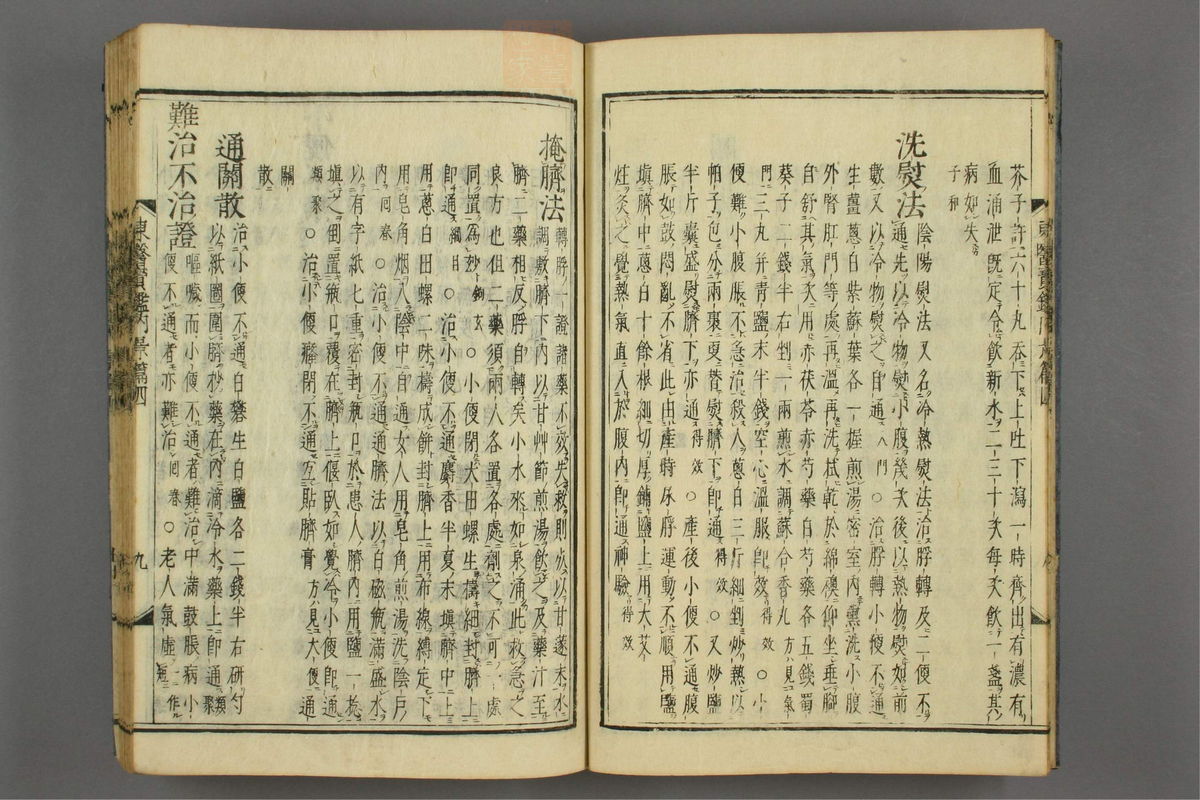 芥子許二六十丸吞下上吐下瀉一時齊出有濃有
血涌泄旣定令飮新水二三十次每次飮一盞其
病如失
子和
洗熨法
陰陽熨法又名冷熱熨法治脬轉及二便不
通先以冷物熨小腹幾次後以熱物熨如前
數又以冷物熨之自通 入門 ○治脬轉小便不通
生薑葱白紫蘇葉各一握煎湯密室內熏洗小腹
外腎肛門等處再溫再洗拭乾於綿被仰坐垂脚
自舒其氣次用赤茯苓赤芍藥白芍藥各五錢蜀
葵子二錢半右剉一兩煎水調蘇合香丸 方見氣門
三丸幷靑鹽末半錢空心溫服卽效 得效 ○小
便難小腹脹不急治殺人葱白三斤細剉炒熱以
帕子包分兩裹更替熨臍下卽通 得效 ○又炒鹽
半斤囊盛熨臍下亦通 得效 ○產後小便不通腹
脹如鼓悶亂不省此由產時尿脬運動不順用鹽
塡臍中葱白十餘根細切厚鋪鹽上用大艾
炷灸之覺熱氣直入於腹內卽通神驗 得效
掩臍法
轉脬一證諸藥不效失救則死以甘遂末水
調敷臍下內以甘艸節煎湯飮之及藥汁至
臍二藥相反脬自轉矣小水來如泉涌此救急之
良方也但二藥須兩人各置各處劑之不可一處
同置爲妙 鉤玄 ○小便閉大田螺生擣細封臍上
卽通 綱目 ○治小便不通麝香半夏末塡臍中上
用葱白田螺二味擣成餠封臍上用布線縛定下
用皂角烟入陰中自通女人用皂角煎湯洗陰戶
內 回春 ○治小便不通通臍法以白磁甁滿盛水
以有字紙七重密封甁口於患人臍內用鹽一捻
塡之倒置甁口覆在臍上偃臥如覺冷小便卽通
類聚 ○治小便癃閉不通互貼臍膏 方見大便
通關散
通關散
治小便不通白礬生白鹽各二錢半右硏勻
以紙圈圍臍抄藥在內滴冷水藥上卽通 類聚
難治不治證
嘔噦而小便不通者難治中滿鼓脹病小
便不通者亦難治 回春 ○老人氣虛 一作短 小
東醫寶鑑內景篇四
九